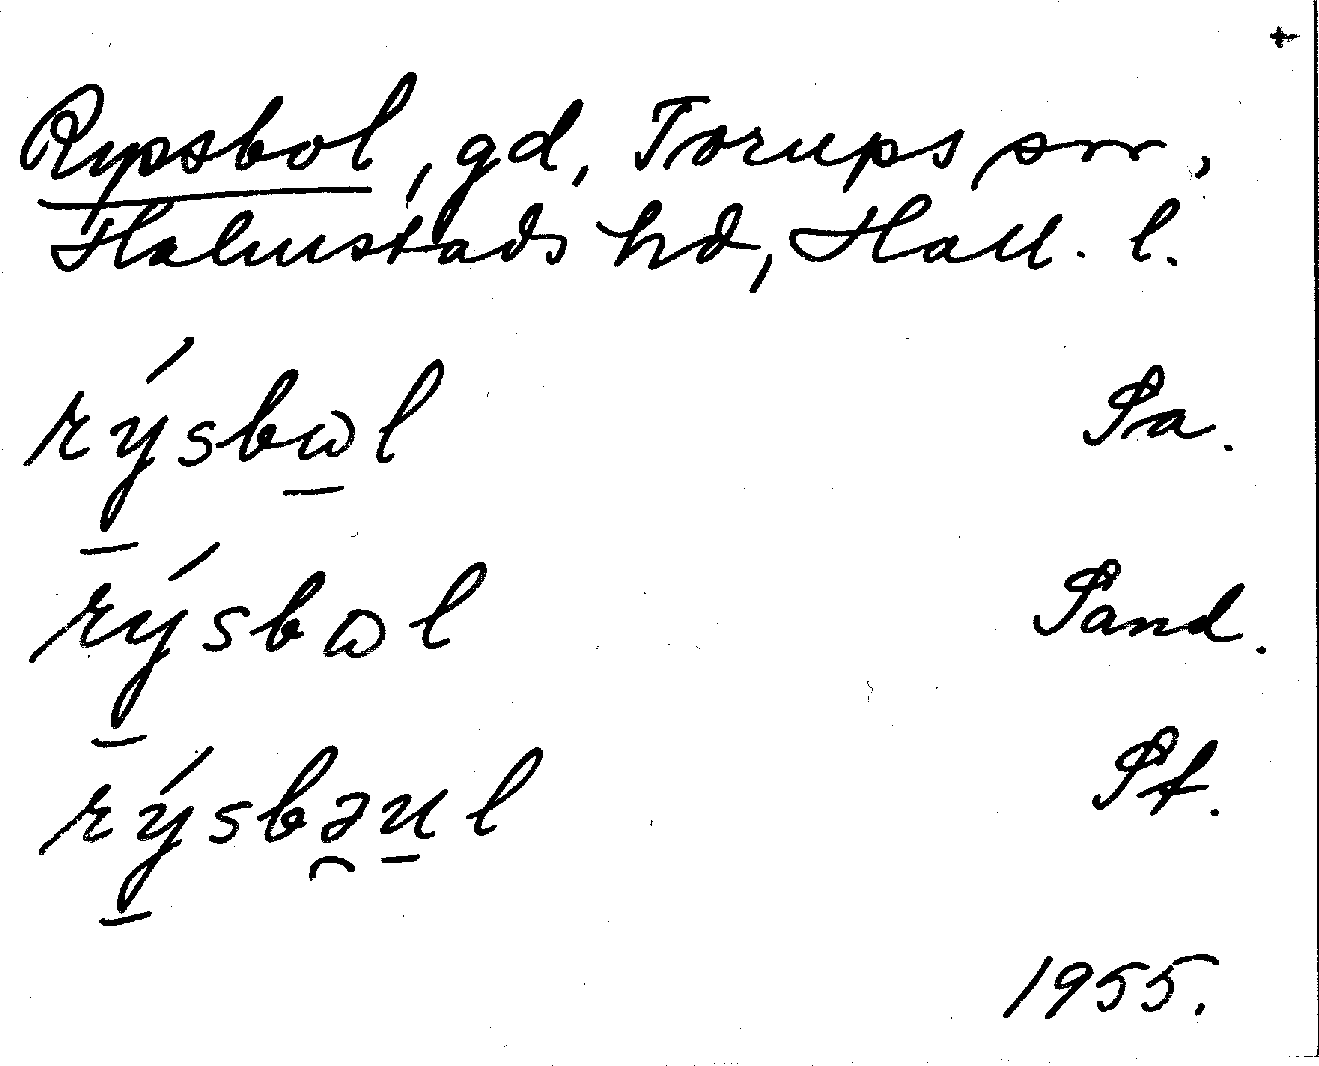 +
Rypsbol, gd, Torups sn,
Halmstads hd, Hall. l.
rý̱sbω̱l Sa.
rý̱sbωl Sand.
rý̱sbə̯u̱l St.
1955.